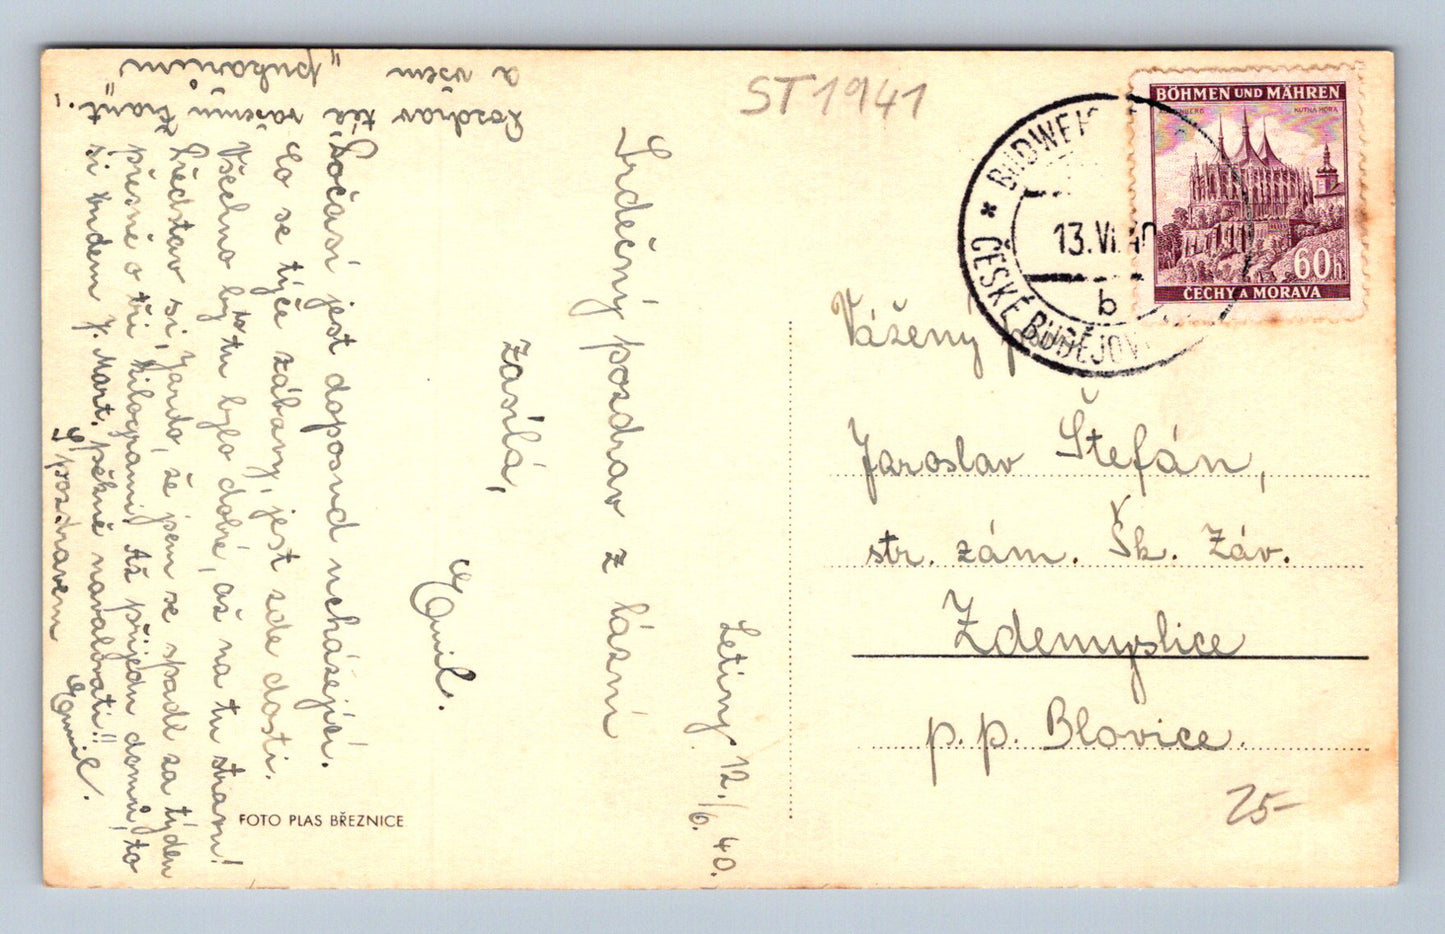 ST 1941
BÖHMEN UND MÄHREN
KUTNÁ HORA
60h
ČECHY A MORAVA
ČESKÉ BUDĚJOV
13.VI.40
b
Vážený
Jaroslav Štefán,
str. zám. Šk. Záv.
Zdemyslice
p. p. Blovice.
25-
Letiny 12./6. 40.
Srdečný pozdrav z lázní
zasílá,
Emil.
Počasí jest doposud ucházející.
Co se týče zábavy, jest zde dosti.
Všechno by tu bylo dobré, až na tu stravu!
Představ si, Jardo, že jsem se spadl za týden
přesně o tři kilogramy! Až přijedu domů, to
si budem J. Mart. pěkně navalovati!!
S pozdravem
Emil.
Pozdrav též vašemu
a všem
FOTO PLAS BŘEZNICE